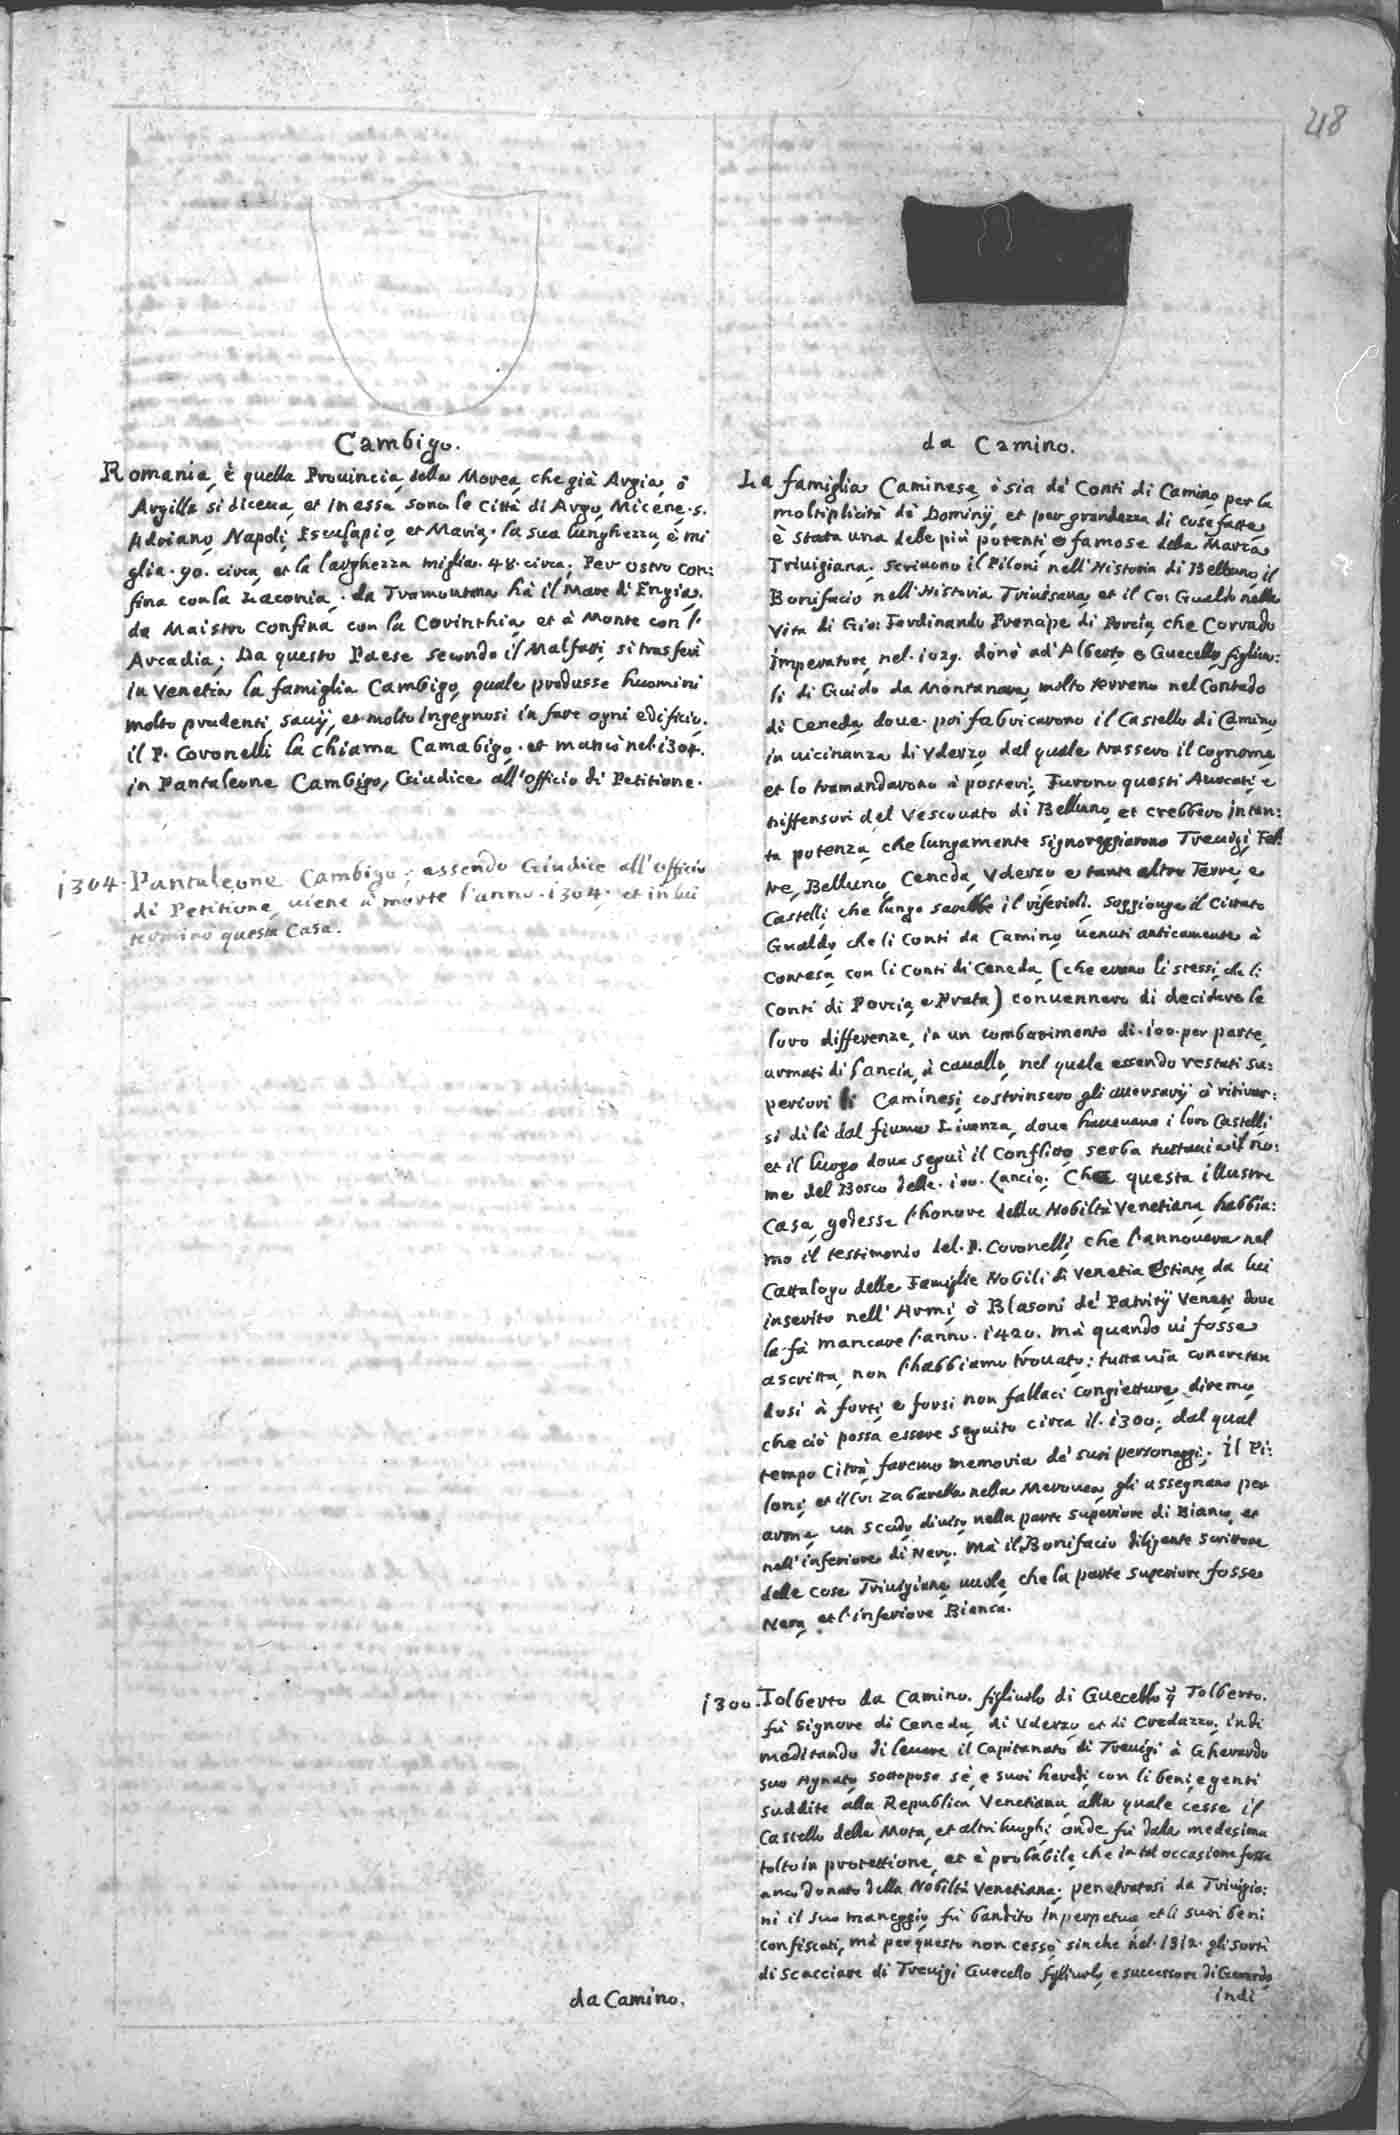 48
Cambigo.
Romania, è quella Prouincia, della Morea, che già Argia, ò
Argilla si diceua, et in essa sono le Città di Argo, Micene, S.
Adriano, Napoli, Esculapio, et Maria. la sua lunghezza, è mi
glia. 90. circa, et la larghezza miglia. 48. circa; Per ostro con:
fina con la Laconia, da Tramontana hà il Mare di Engia,
da Maistro confina con la Corinthia, et à Monte con l'
Arcadia; Da questo Paese secondo il Malfatti, si trasferì
in Venetia la famiglia Cambigo, quale produsse huomini
molto prudenti, sauij, et molto Ingegnosi in fare ogni edificio.
il P. Coronelli la chiama Camabigo, et mancò nel. 1304.
in Pantaleone Cambigo, Giudice all'officio di Petitione.
1304. Pantaleone Cambigo, essendo Giudice all'officio
di Petitione, uiene à morte l'anno. 1304. et in lui
terminò questa Casa.
da Camino.
da Camino.
La famiglia Caminese, ò sia de' Conti di Camino, per la
moltiplicità de' Dominij, et per grandezza di cose fatte,
è stata una delle più potenti, e famose della Marca
Triuigiana. scriuono il Piloni nell'Historia di Belluno, il
Bonifacio nell'Historia Triuisana, et il Co: Gualdo nella
Vita di Gio: Ferdinando Prencipe di Porcia, che Corrado
Imperatore, nel. 1029. donò ad'Alberto, e Guecello, figliuo:
li di Guido da Montanara, molto terreno nel Contado
di Ceneda, doue poi fabricarono il Castello di Camino,
in uicinanza di Vderzo, dal quale trassero il cognome,
et lo tramandarono à posteri; Furono questi Auocati, e
diffensori del Vescouato di Belluno, et crebbero in tan:
ta potenza, che lungamente signoreggiarono Treuigi, Fel:
tre, Belluno, Ceneda, Vderzo, e tante altre Terre, e
Castelli, che lungo sarebbe il riferirli. Soggionge il Cittato
Gualdo, che li Conti da Camino, uenuti anticamente à
Contesa con li Conti di Ceneda, (che erano li stessi, che li
Conti di Porcia, e Prata) conuennero di decidere le
loro differenze, in un combatimento di. 100. per parte,
armati di lancia, à cauallo, nel quale essendo restati su:
periori li Caminesi, costrinsero gli auersarij à ritirar:
si di là dal fiume Liuenza, doue haueuano i loro Castelli
et il luogo doue seguì il Conflitto, serba tuttauia il no:
me del Bosco delle. 100. Lancie; Che questa illustre
Casa, godesse l'honore della Nobiltà Venetiana, habbia:
mo il testimonio del. P. Coronelli, che l'annouera nel
Cattalogo delle Famiglie Nobili di Venetia Estinte, da lui
inserito nell'Armi, ò Blasoni de' Patritij Veneti, doue
la fà mancare l'anno. 1420. mà quando ui fosse
ascritta, non l'habbiamo trouato; tuttauia concretan
dosi à forti, e forsi non fallaci Congietture, diremo,
che ciò possa essere seguito circa il. 1300; dal qual
tempo Citrà, faremo memoria de' suoi personaggi; Il Pi:
loni, et il Co: Zabarella nella Merouea, gli assegnano per
arma, un Scudo, diuiso, nella parte superiore di Bianco, et
nell'inferiore di Nero. Mà il Bonifacio diligente scrittore
delle cose Triuigiane, uuole, che la parte superiore fosse
Nera, et l'inferiore Bianca.
1300. Tolberto da Camino, figliuolo di Guecello q Tolberto.
fù Signore di Ceneda, di Vderzo et di Credazzo; indi
meditando di leuare il Capitanato di Treuigi à Gherardo
suo Agnato, sottopose sè, e suoi heredi, con li beni, e genti
suddite alla Republica Venetiana, alla quale cesse il
Castello della Mota, et altri luoghi, onde fù dalla medesima
tolto in protettione, et è probabile, che in tal occasione fosse
anco donato della Nobiltà Venetiana; penetratosi da Triuigia:
ni il suo maneggio, fù bandito in perpetuo, et li suoi beni
confiscati, mà per questo non cessò, sin che nel. 1312. gli sortì
di scacciare di Treuigi Guecello figliuolo, e successore di Gerardo,
indi